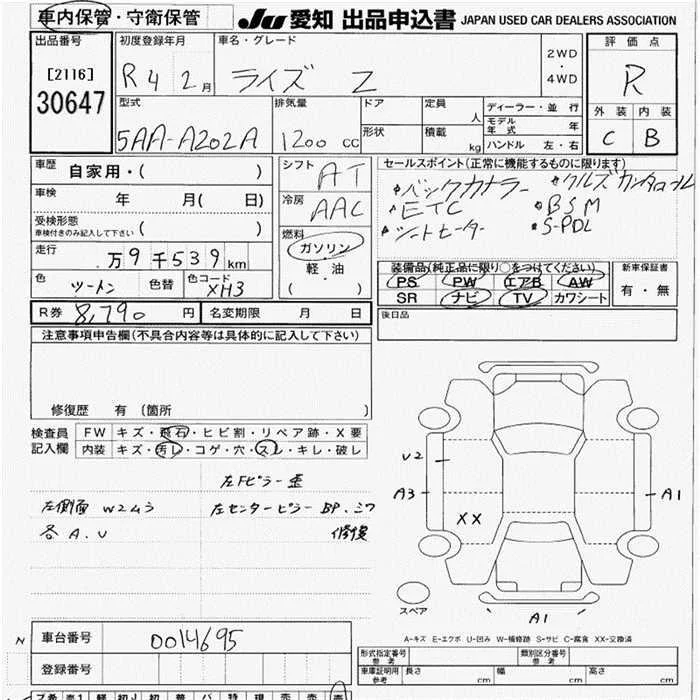 車内保管・守衛保管
JU 愛知 出品申込書 JAPAN USED CAR DEALERS ASSOCIATION
出品番号 初度登録年月 車名・グレード 2WD・4WD 評価点
[2116] R4 2月 ライズ Z R
30647
型式 排気量 ドア 定員 人 ディーラー・並行 外装 内装
モデル年式 年
5AA-A202A 1200cc 形状 積載 kg ハンドル 左・右 C B
車歴 自家用・( ) シフト AT セールスポイント(正常に機能するものに限ります)
バックカメラー
車検 年 月( 日) 冷房 AAC ETC BSM
受検形態 シートヒーター S-PDL
車検付きのみ記入して下さい ( ) 燃料
走行 万9千539km ガソリン 装備品(純正品に限り○をつけてください) 新車保証書
軽・油 PS PW エアB AW 有・無
色 ツートン 色替 色コード XH3 ( ) SR ナビ TV カワシート
R券 8,790円 名変期限 月 日 後日品
注意事項申告欄(不具合内容等は具体的に記入して下さい)
修復歴 有(箇所 )
検査員 FW キズ・飛石・ヒビ割・リペア跡・X要
記入欄 内装 キズ・汚レ・コゲ・穴・スレ・キレ・破レ
U2
左Fピラー 歪
A3 A1
左側面 W2ムラ 左センターピラー BP.シワ
XX
各 A.U 修復
スペア
A1
A-キズ E-エクボ U-凹み W-補修跡 S-サビ C-腐食 XX-交換済
N 車台番号 0014695
型式指定番号 参考 類別区分番号 参考
登録番号 車庫証明用 参考 長さ cm 幅 cm 高さ cm